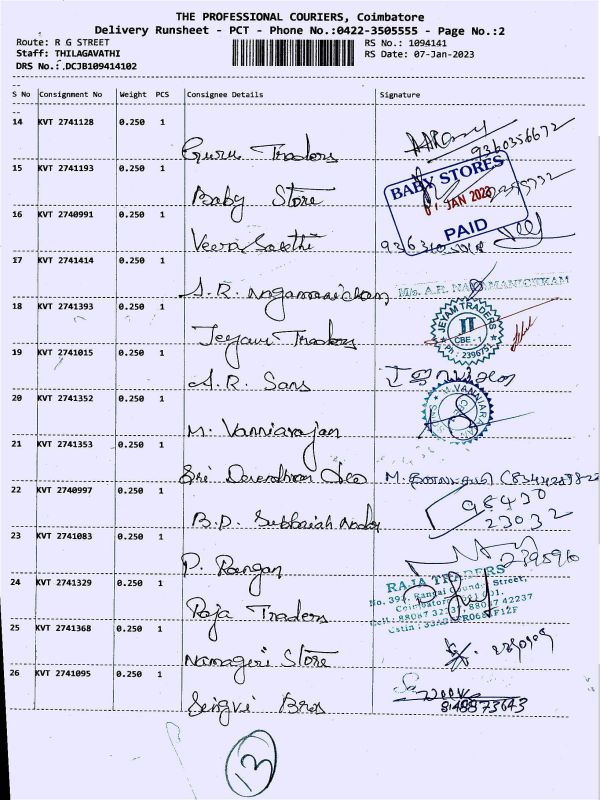 THE PROFESSIONAL COURIERS, Coimbatore
Delivery Runsheet - PCT - Phone No.:0422-3505555 - Page No.:2
Route: R G STREET RS No.: 1094141
Staff: THILAGAVATHI RS Date: 07-Jan-2023
DRS No.: DCJB109414102
S No Consignment No Weight PCS Consignee Details Signature
14 KVT 2741128 0.250 1
Guru Traders 9360356672
15 KVT 2741193 0.250 1
BABY STORES
07 JAN 2023
PAID
Baby Store
16 KVT 2740991 0.250 1
Veera Sakthi
17 KVT 2741414 0.250 1
A. R. Nagamanickam M/s. A.R. NAGAMANICKAM
18 KVT 2741393 0.250 1
JEYAM TRADERS
JT
CBE - 1
Jeyam Traders
19 KVT 2741015 0.250 1
A. R. Sons
20 KVT 2741352 0.250 1
M. VANNIARAJAN
M. Vanniarajan
21 KVT 2741353 0.250 1
Sri Devendhran
22 KVT 2740997 0.250 1
98430
23032
B.D. Subbaiah Nadar
23 KVT 2741083 0.250 1
P. Rangan
24 KVT 2741329 0.250 1
RAJA TRADERS
Street,
Coimbatore
Cell: 88087 32237, 88077 42237
Raja Traders
25 KVT 2741368 0.250 1
Namagiri Store
26 KVT 2741095 0.250 1
Singvi Bros 8148873643
13